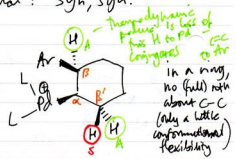 syn, syn.
Thermodynamic
product is loss of
this H to Pd
conjugates C=C
to Ar
H
A
Ar
B
L
⊕
Pd
α
L
B'
H
S
H
A
in a ring,
no (full) rotn
about C-C
(only a little
conformational)
flexibility